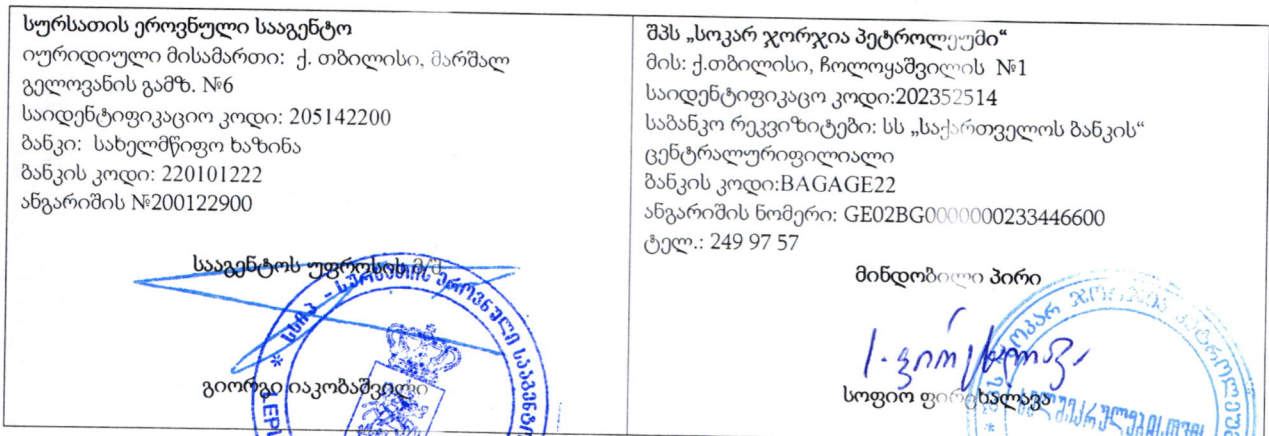 სურსათის ეროვნული სააგენტო
იურიდიული მისამართი: ქ. თბილისი, მარშალ
გელოვანის გამზ. №6
საიდენტიფიკაციო კოდი: 205142200
ბანკი: სახელმწიფო ხაზინა
ბანკის კოდი: 220101222
ანგარიშის №200122900
სააგენტოს უფროსის მ/შ
გიორგი იაკობაშვილი
სსიპ - სურსათის ეროვნული სააგენტო
შპს „სოკარ ჯორჯია პეტროლეუმი“
მის: ქ.თბილისი, ჩოლოყაშვილის №1
საიდენტიფიკაცო კოდი:202352514
საბანკო რეკვიზიტები: სს „საქართველოს ბანკის“
ცენტრალურიფილიალი
ბანკის კოდი:BAGAGE22
ანგარიშის ნომერი: GE02BG0000000233446600
ტელ.: 249 97 57
მინდობილი პირი
სოფიო ფირცხალავა
შპს სოკარ ჯორჯია პეტროლეუმი